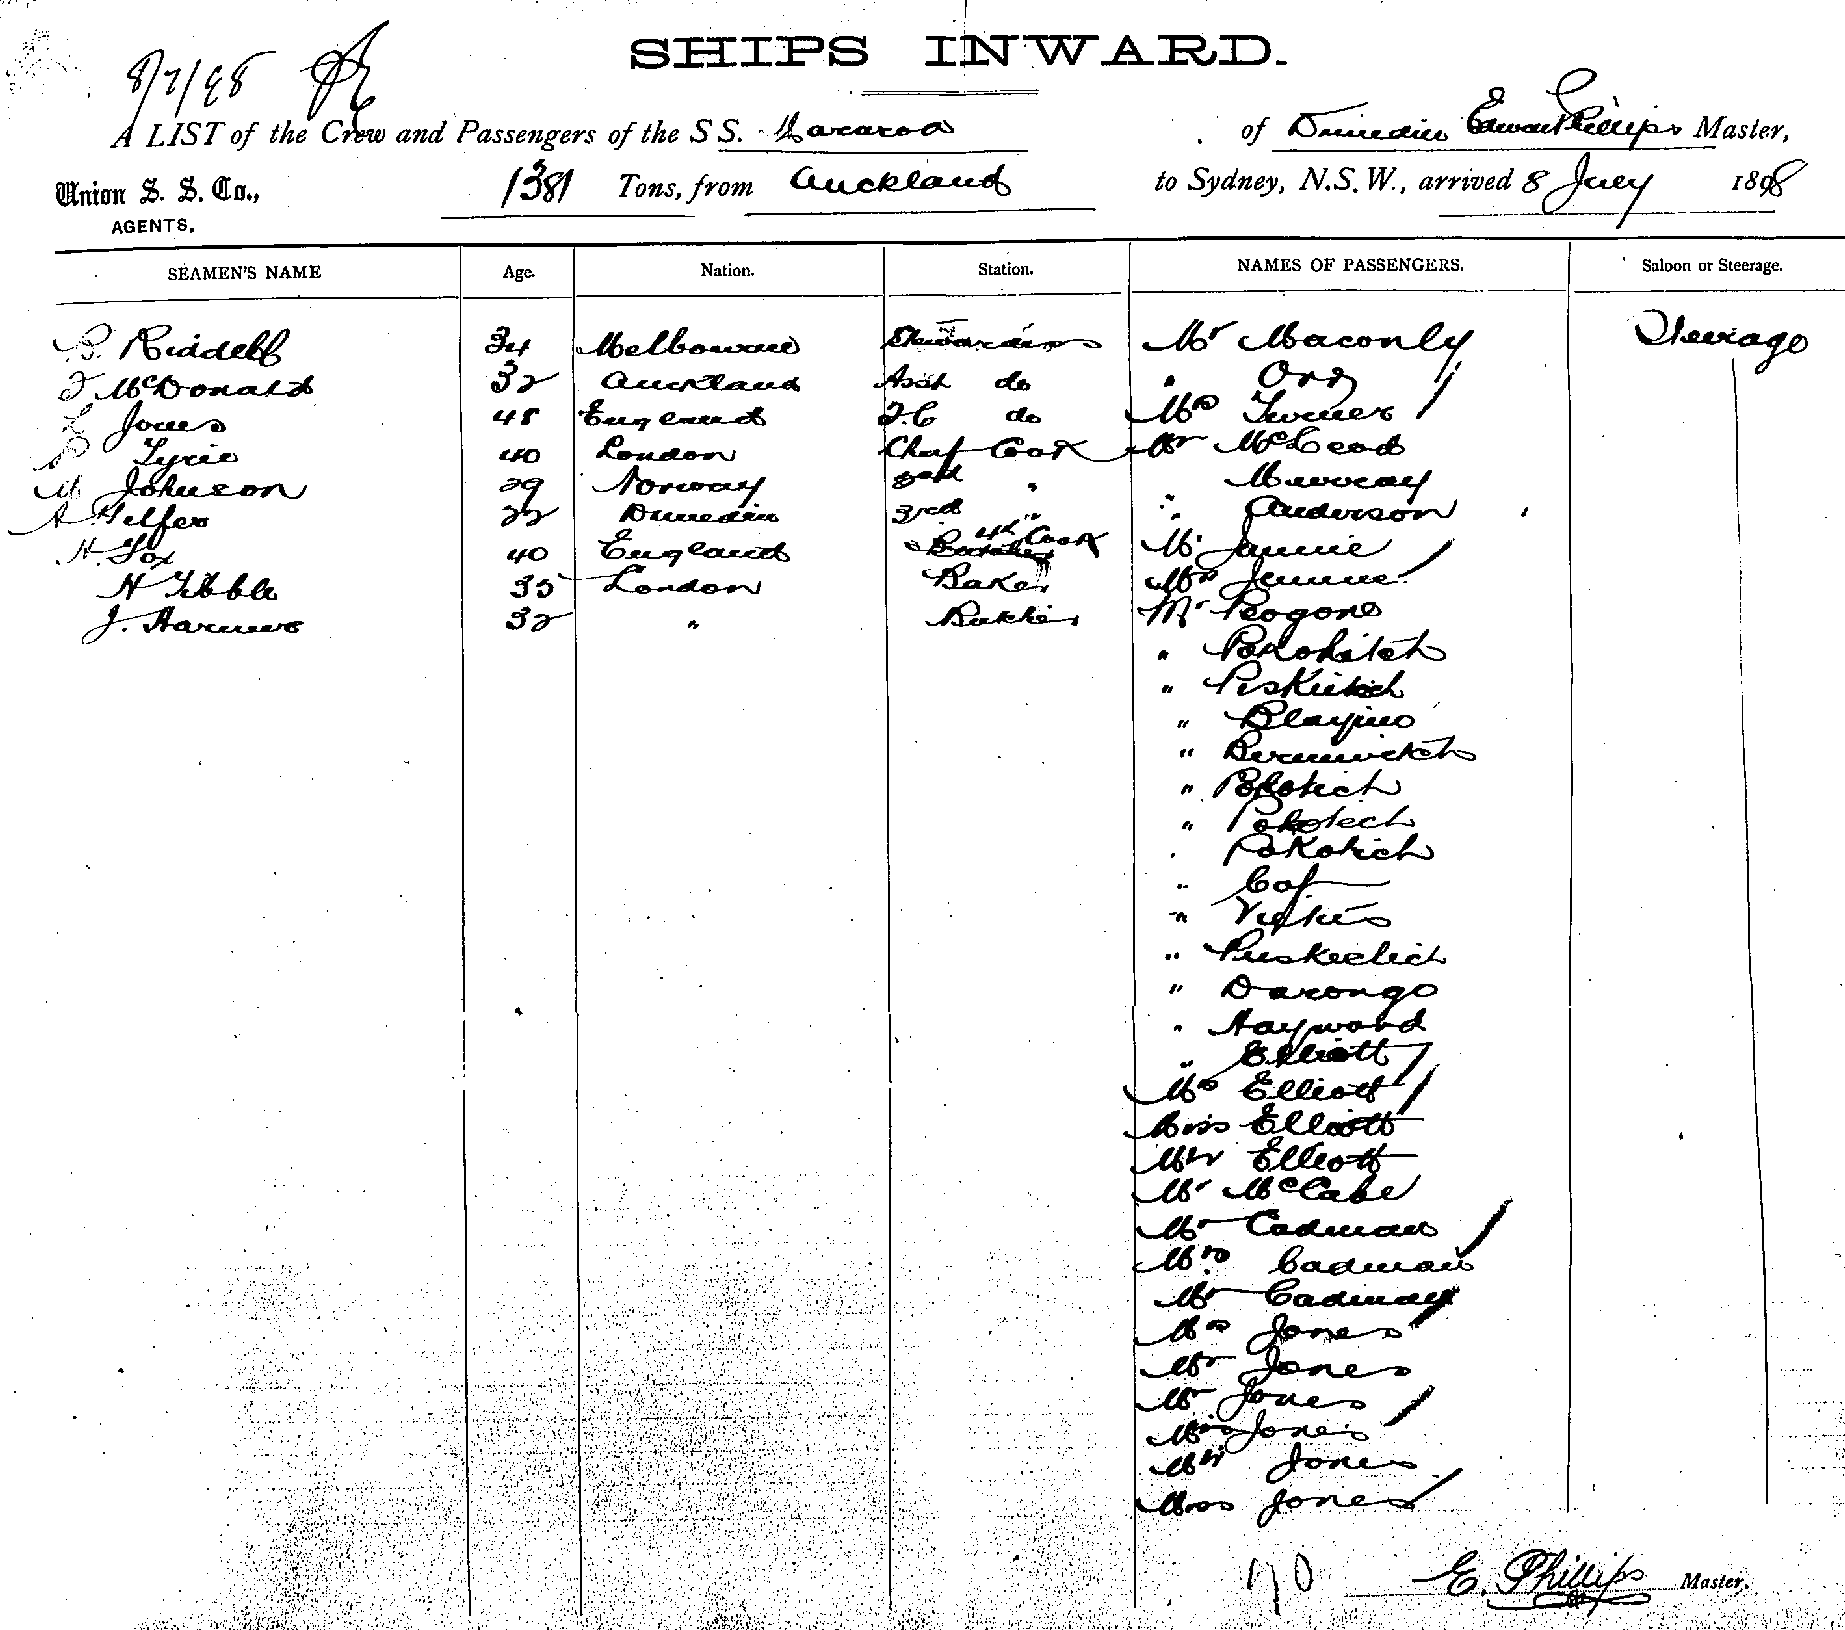 8/7/98
SHIPS INWARD.
A LIST of the Crew and Passengers of the S S. Mararoa of Dunedin Edward Phillips Master,
Union S. S. Co., 1381 Tons, from Auckland to Sydney, N.S.W., arrived 8 July 1898
AGENTS.
SEAMEN'S NAME Age. Nation. Station. NAMES OF PASSENGERS. Saloon or Steerage.
Riddell 34 Melbourne Mr Maconly Steerage
McDonald 32 Auckland Asst do " Ord
Jones 48 England do Mrs Turner
Tyrie 40 London Chef Cook Mr McLeod
M Johnson 29 Norway 2nd " Murray
A Telfer 22 Dunedin 3rd " " Anderson
H. Fox 40 England 4th Cook Mr
H Tibble 35 London Baker Mrs
J. 32 " Mr Rogone
"
"
"
"
" Pokotich
" Pokotich
" Pokotich
"
"
"
" Darongo
" Hayward
" Elliott
Mrs Elliott
Miss Elliott
Mstr Elliott
Mr McCabe
Mr Cadman
Mrs Cadman
Mr Cadman
Mrs Jones
Mr Jones
Mr Jones
Miss Jones
Mstr Jones
Miss Jones
70 E. Phillips Master.